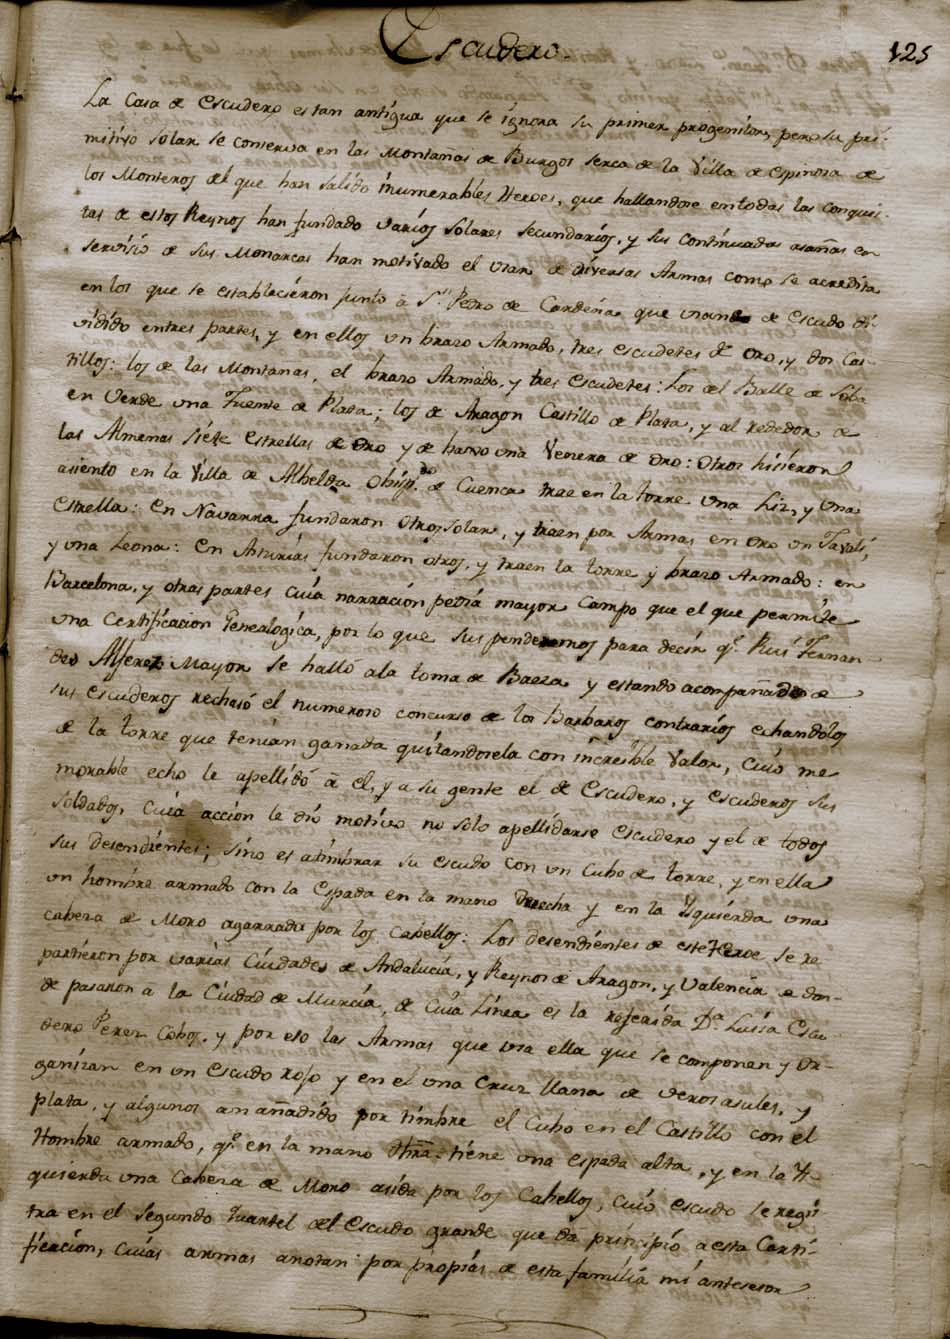 Escudero.
125
La Casa de Escudero es tan antigua que se ignora su primer progenitor, pero su pri-
mitivo solar se conserva en las Montañas de Burgos serca de la Villa de Espinosa de
los Monteros del que han salido inumerables Heroes, que hallandose en todas las conquis-
tas de estos Reynos han fundado varios solares secundarios, y sus continuadas asañas en
servisio de sus Monarcas han motivado el usar de diversas Armas como se acredita
en los que se establecieron junto á Sn. Pedro de Cardeña que usan de escudo di-
vidido entres partes, y en ellos un brazo Armado, tres escudetes de oro, y dos Cas-
tillos: los de las Montañas, el brazo Armado, y tres escudetes: Los del Balle de Soba
en Verde una Fuente de Plata; los de Aragon Castillo de Plata, y al rededor de
las Almenas siete estrellas de oro y de baxo una Venera de oro: otros hisieron
asiento en la Villa de Albelda Obisp.do de Cuenca trae en la torre una Liz, y una
estrella: en Navarra fundaron otro solar, y traen por Armas en oro un Javalí,
y una Leona: en Asturias fundaron otros, y traen la torre y brazo Armado: en
Barcelona, y otras partes cuia narración pedia mayor campo que el que permite
una certificacion Genealogica, por lo que suspenderemos para decir q.e Rui Fernan-
des Alferez Mayor se halló ala toma de Baeza y estando acompañado de
sus escuderos rechasó el numeroso concurso de los Barbaros contrarios echandolos
de la torre que tenian ganada quitandosela con increible valor, cuio me
morable echo le apellidó á el, y a su gente el de Escudero, y escuderos sus
soldados, cuia acción le dió motivo no solo apellidarse escudero y el de todos
sus desendientes; sino es atimbrar su escudo con un Cubo de torre, y en ella
un hombre armado con la espada en la mano derecha y en la isquierda una
cabeza de Moro agarrada por los cabellos: Los desendientes de este Heroe se re
partieron por varias Ciudades de Andalucia, y Reynos de Aragon, y Valencia de don-
de pasaron a la Ciudad de Murcia, de cuia Linea es la referida D.a Luisa Escu
dero Perez Cobos, y por eso las Armas que usa ella que se componen y or-
ganizan en un escudo roxo y en el una Cruz llana de veros asules, y
plata, y algunos an añadido por timbre el Cubo en el Castillo con el
Hombre armado, q.e en la mano dra. tiene una espada alta, y en la Is-
quierda una Cabeza de Moro asida por los Cabellos, cuio escudo se regis
tra en el segundo quartel del escudo grande que da principio a esta Certi-
ficacion, cuias armas anotan por propias de esta familia mi antesesor